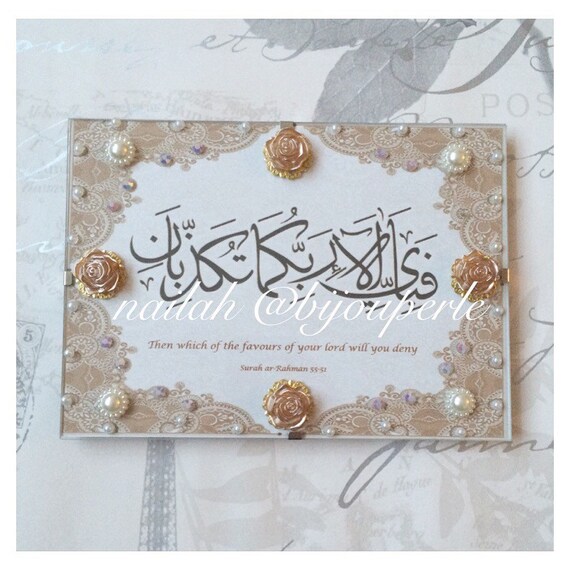 POS
فَبِأَيِّ آلَاءِ رَبِّكُمَا تُكَذِّبَانِ
nailah @bijouperle
Then which of the favours of your lord will you deny
Surah ar-Rahman 55-51